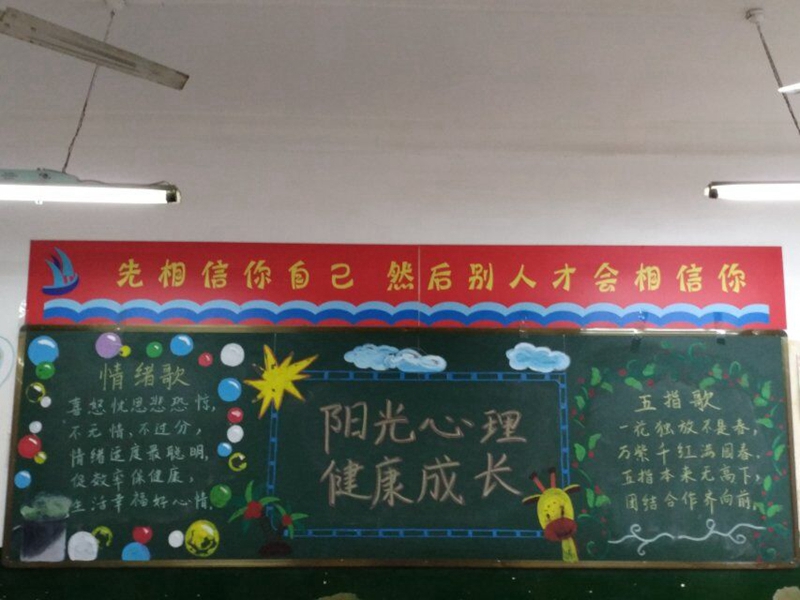 先相信你自己 然后别人才会相信你
情绪歌
喜怒忧思悲恐惊,
不无情、不过分,
情绪适度最聪明,
促效率保健康,
生活幸福好心情.
阳光心理
健康成长
五指歌
一花独放不是春,
万紫千红满园春,
五指本来无高下,
团结合作齐向前,